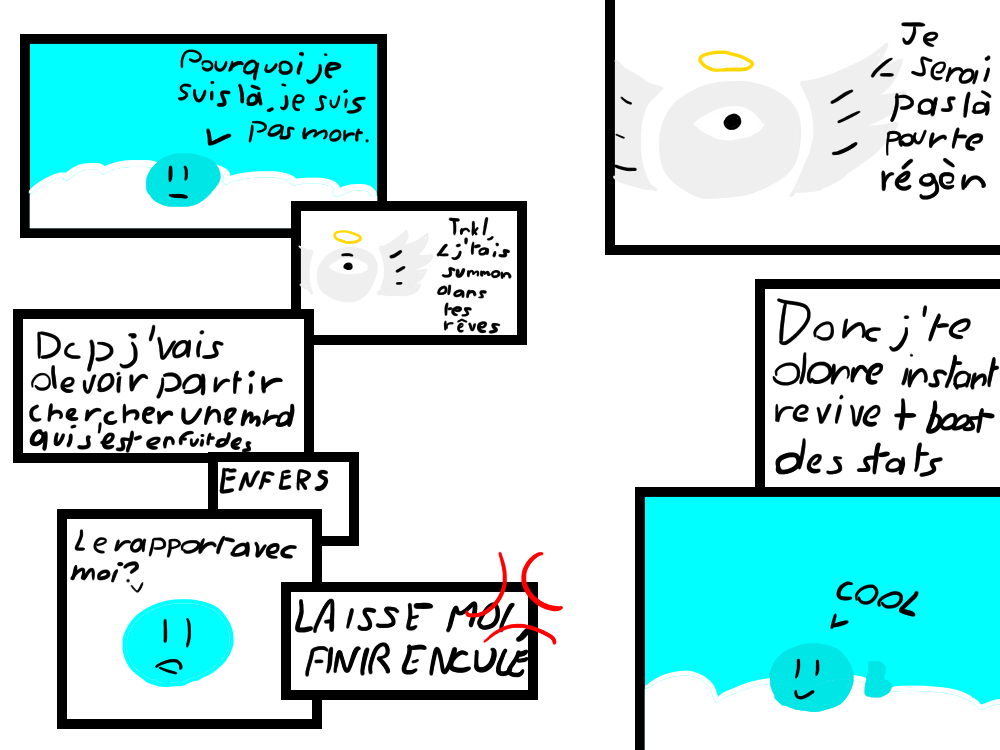 Pourquoi je
suis là, je suis
pas mort.
Trkl,
j'tais
summon
dans
tes
rêves
Dcp j'vais
devoir partir
chercher une mrd
qui s'est enfuit des
ENFERS
Le rapport avec
moi?
LAISSE MOI
FINIR ENCULÉ
Je
serai
pas là
pour te
régèn
Donc j'te
donne instant
revive + boost
des stats
COOL